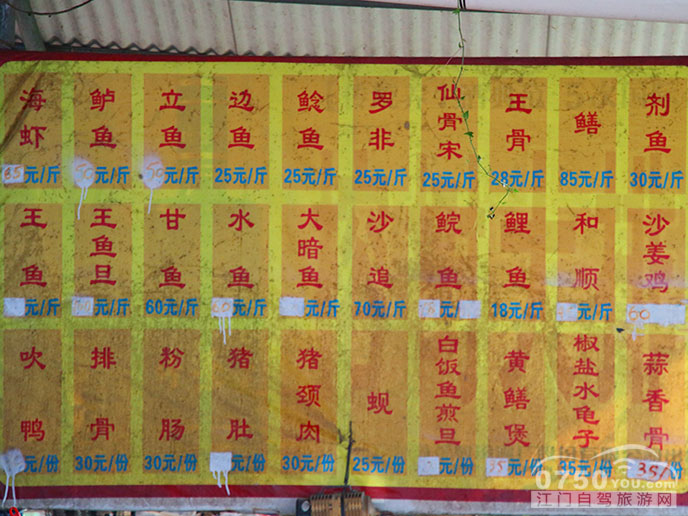 海虾 85元/斤
鲈鱼 50元/斤
立鱼 50元/斤
边鱼 25元/斤
鲶鱼 25元/斤
罗非 25元/斤
仙骨宋 25元/斤
王骨 28元/斤
鳝 85元/斤
剂鱼 30元/斤
王鱼 元/斤
王鱼旦 元/斤
甘鱼 60元/斤
水鱼 元/斤
大暗鱼 元/斤
沙追 70元/斤
鲩鱼 元/
鲤鱼 18元/斤
和顺 元/斤
沙姜鸡 60
吹鸭 元/份
排骨 30元/份
粉肠 30元/份
猪肚 元/份
猪颈肉 30元/份
蚬 25元/份
白饭鱼煎旦 元/份
黄鳝煲 35元/份
椒盐水龟子 35元/份
蒜香骨 35/份
0750YOU.com
江门自驾旅游网